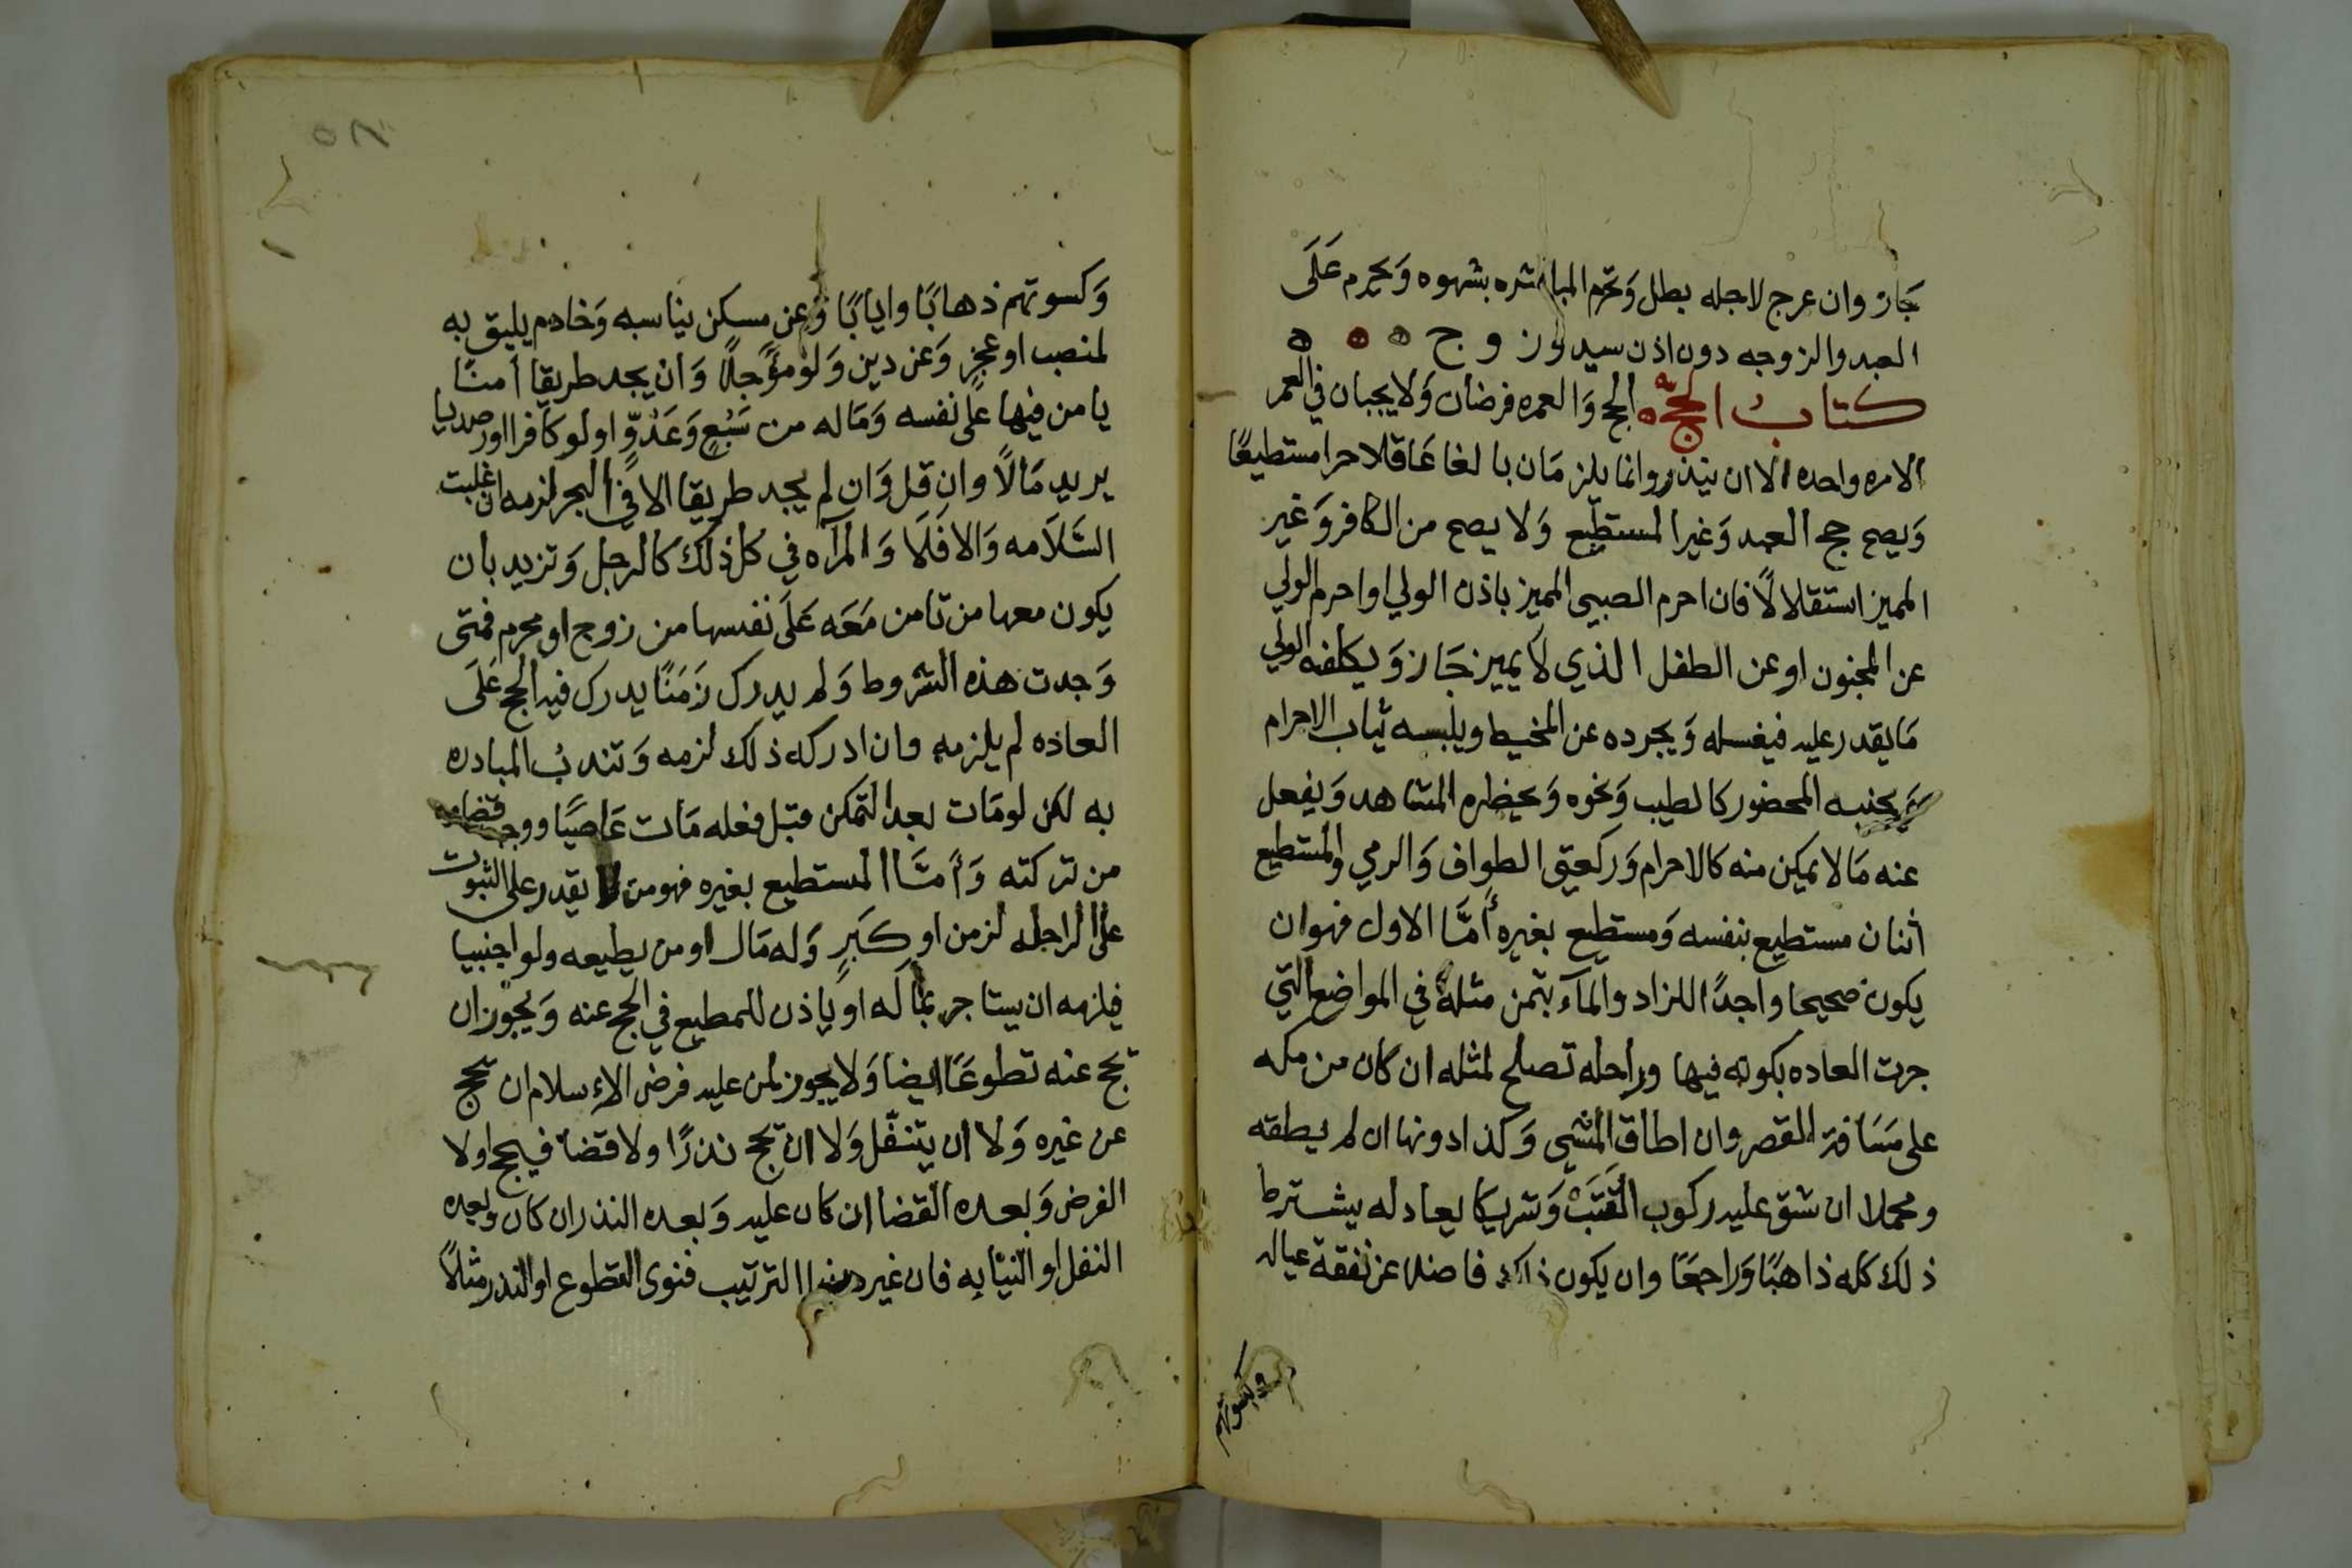 جَاز وان عرج لاجله بطل وَتحرم المباشره بشهوه وَيحرم عَلَى
العبد والزوجه دون اذن سيد وزوج ه ه ه
كتابُ الحجّ ه الحج وَالعمره فرضان وَلا يجبان في العمر
الامره واحده الا ان ينذر وانما يلزمان بالغا عَاقلا حرا مستطيعًا
وَيصح حج العبد وَغير المستطيع وَلا يصح من الكافر وَغير
المميز استقلالاً فان احرم الصبي المميز باذن الولي او احرم الولي
عن المجنون او عن الطفل الذي لا يميز جَاز وَيكلفه الولي
مَا يقدر عليه فيغسله وَيجرده عن المخيط ويلبسه ثياب الاحرام
وَيجنبه المحضور كالطيب وَنحوه وَيحظره المشاهد وَيفعل
عنه مَا لا يمكن منه كالاحرام وَركعتي الطواف وَالرمي والمستطيع
اثنان مستطيع بنفسه وَمستطيع بغيره أمَّا الاول فهو ان
يكون صحيحا واجدًا للزاد والمآء بثمن مثله في المواضع التي
جرت العاده بكونه فيها وراحله تصلح لمثله ان كان من مكه
على مسَافة القصر وان اطاق المشي وَكذا دونها ان لم يطقه
ومحملا ان شق عليه ركوب القَتَبْ وَشريكا يعادله يشترط
ذلك كله ذاهبًا وَراجعًا وان يكون ذلك فاضلا عن نفقة عياله
وكسوتهم
٥٨
وَكسوتهم ذهابًا وايابًا وَعن مسكن يناسبه وَخادم يليق به
لمنصب او عجزٍ وَعن دين وَلو مؤجلاً وَان يجد طريقا أمنًا
يامن فيها على نفسه وَمَاله من سَبُعٍ وَعَدُوٍّ او لو كافرا اور صديا
يريد مَالاً وان قل وَان لم يجد طريقا الا في البحر لزمه ان غلبت
السَّلاَمه وَالا فَلَا وَالمرآه في كل ذلك كالرجل وَتزيد بان
يكون معها من تامن مَعَه عَلَى نفسها من زوج او محرم فمتى
وَجدت هذه الشروط وَلم يدرك زَمَنًا يدرك فيه الحج عَلَى
العاده لم يلزمه وان ادركه ذلك لزمه وَتندبُ المبادره
به لكن لو مَات بعد التمكن قبل فعله مَات عَاصيًا ووجب قضاوه
من تركته وَأمَّا المستطيع بغيره فهو من لا يقدر على الثبوت
على الراحله لزمن او كبَرٍ وَله مَال او من يطيعه ولو اجنبيا
فيلزمه ان يستاجر بمَاله او ياذن للمطيع في الحج عنه وَيجوز ان
تحج عنه تطوعًا ايضا وَلا يجوز لمن عليه فرض الاءسلام ان تحج
عن غيره وَلا ان يتنفّل وَلا ان تحج نذرًا ولا قضا فيحج اولا
الفرض وَبعده القضا ان كان عليه وَبعده النذر ان كان وبعده
النفل او النيابه فان غير هذا الترتيب فنوى التطوع او النذر مثلاً